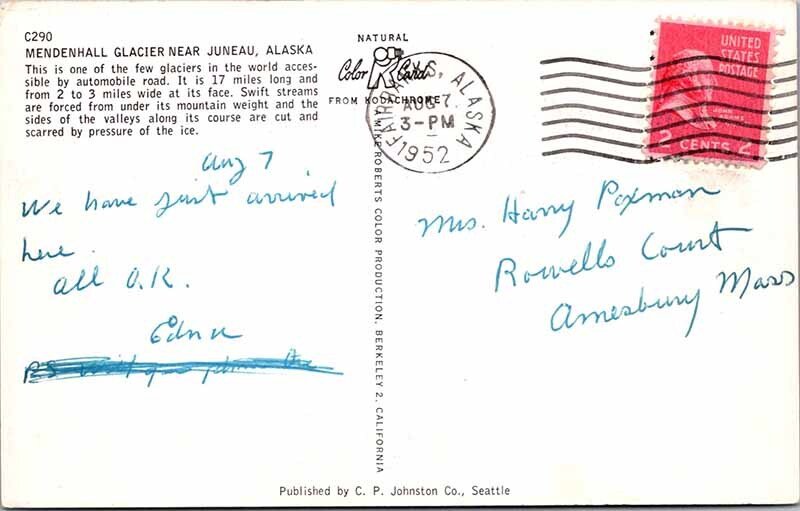 C290
MENDENHALL GLACIER NEAR JUNEAU, ALASKA
This is one of the few glaciers in the world acces-
sible by automobile road. It is 17 miles long and
from 2 to 3 miles wide at its face. Swift streams
are forced from under its mountain weight and the
sides of the valleys along its course are cut and
scarred by pressure of the ice.
Aug 7
We have just arrived
here.
all O.K.
Edna
PS
NATURAL
Color Card
FROM KODACHROME
FAIRBANKS, ALASKA
AUG 7
3-PM
1952
MIKE ROBERTS COLOR PRODUCTION, BERKELEY 2, CALIFORNIA
UNITED
STATES
POSTAGE
JOHN
ADAMS
2 CENTS 2
Mrs. Harry Poxman
Rowells Court
Amesbury Mass
Published by C. P. Johnston Co., Seattle